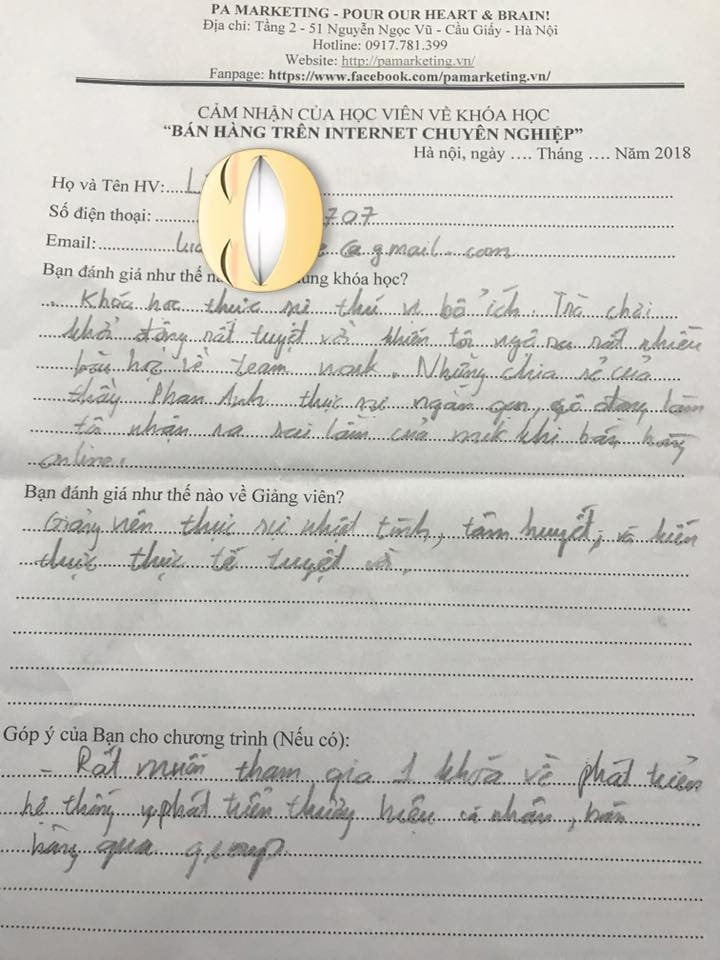 PA MARKETING - POUR OUR HEART & BRAIN!
Địa chỉ: Tầng 2 - 51 Nguyễn Ngọc Vũ - Cầu Giấy - Hà Nội
Hotline: 0917.781.399
Website: http://pamarketing.vn/
Fanpage: https://www.facebook.com/pamarketing.vn/
CẢM NHẬN CỦA HỌC VIÊN VỀ KHÓA HỌC
“BÁN HÀNG TRÊN INTERNET CHUYÊN NGHIỆP”
Hà nội, ngày .... Tháng .... Năm 2018
Họ và Tên HV:
Số điện thoại: 707
Email: @gmail.com
Bạn đánh giá như thế khóa học?
Khóa học thực sự thú vị bổ ích. Trò chơi
khởi động rất tuyệt vời khiến tôi ngộ ra rất nhiều
bài học về team work. Những chia sẻ của
thầy Phan Anh thực sự ngắn gọn, cô đọng làm
tôi nhận ra sai lầm của mik khi bán hàng
online.
Bạn đánh giá như thế nào về Giảng viên?
Giảng viên thực sự nhiệt tình, tâm huyết, và kiến
thức thực tế tuyệt vời.
Góp ý của Bạn cho chương trình (Nếu có):
- Rất muốn tham gia 1 khóa về phát triển
hệ thống, phát triển thương hiệu cá nhân, bán
hàng qua group.